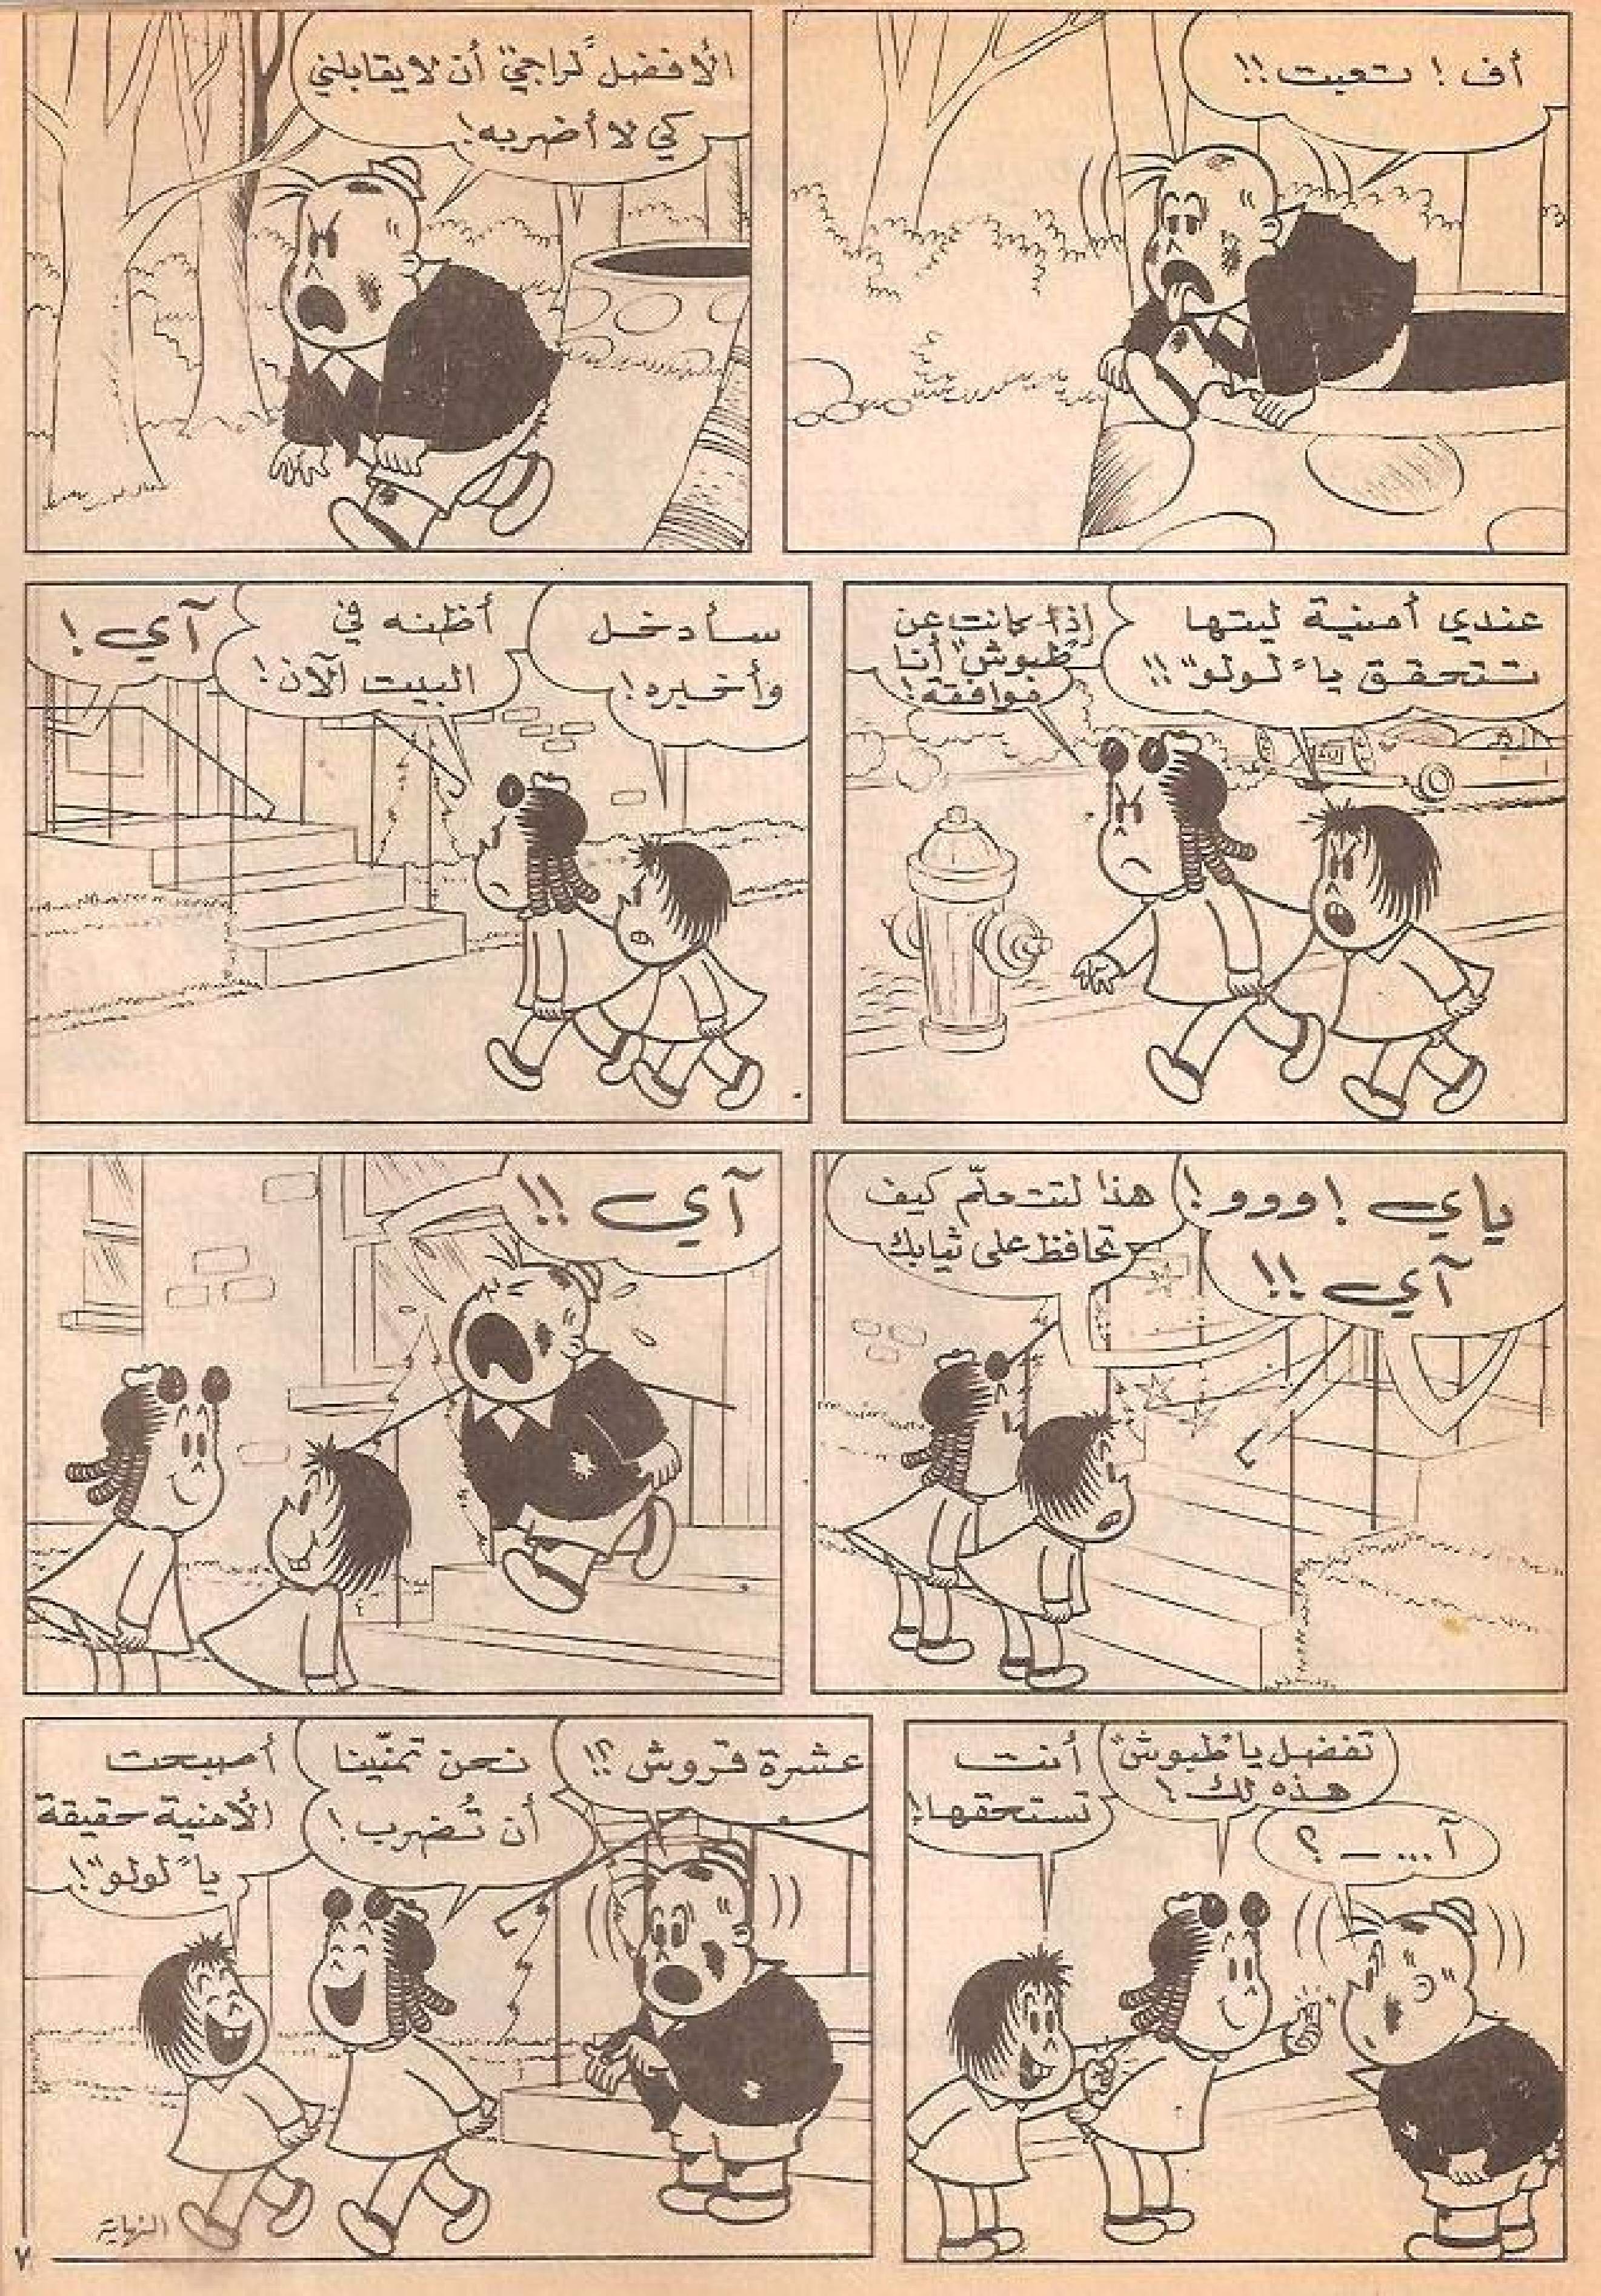 أف ! تعبت !!
الأفضل "لراجي" أن لا يقابلني
كي لا أضربه !
عندي أمنية ليتها
تتحقق يا "لولو" !!
إذا كانت عن
"طبوش" أنا
موافقة !
سأدخل
وأخبره !
أظنه في
البيت الآن !
آي !
ياي ! ووو !
آي !!
هذا لتتعلّم كيف
تحافظ على ثيابك
آي !!
تفضل يا "طبوش"
هذه لك !
آ... ـ ؟
أنت
تستحقها !
عشرة قروش ؟!
نحن تمنّينا
أن تُضرب !
أصبحت
الأمنية حقيقة
يا "لولو" !
النهاية
٧